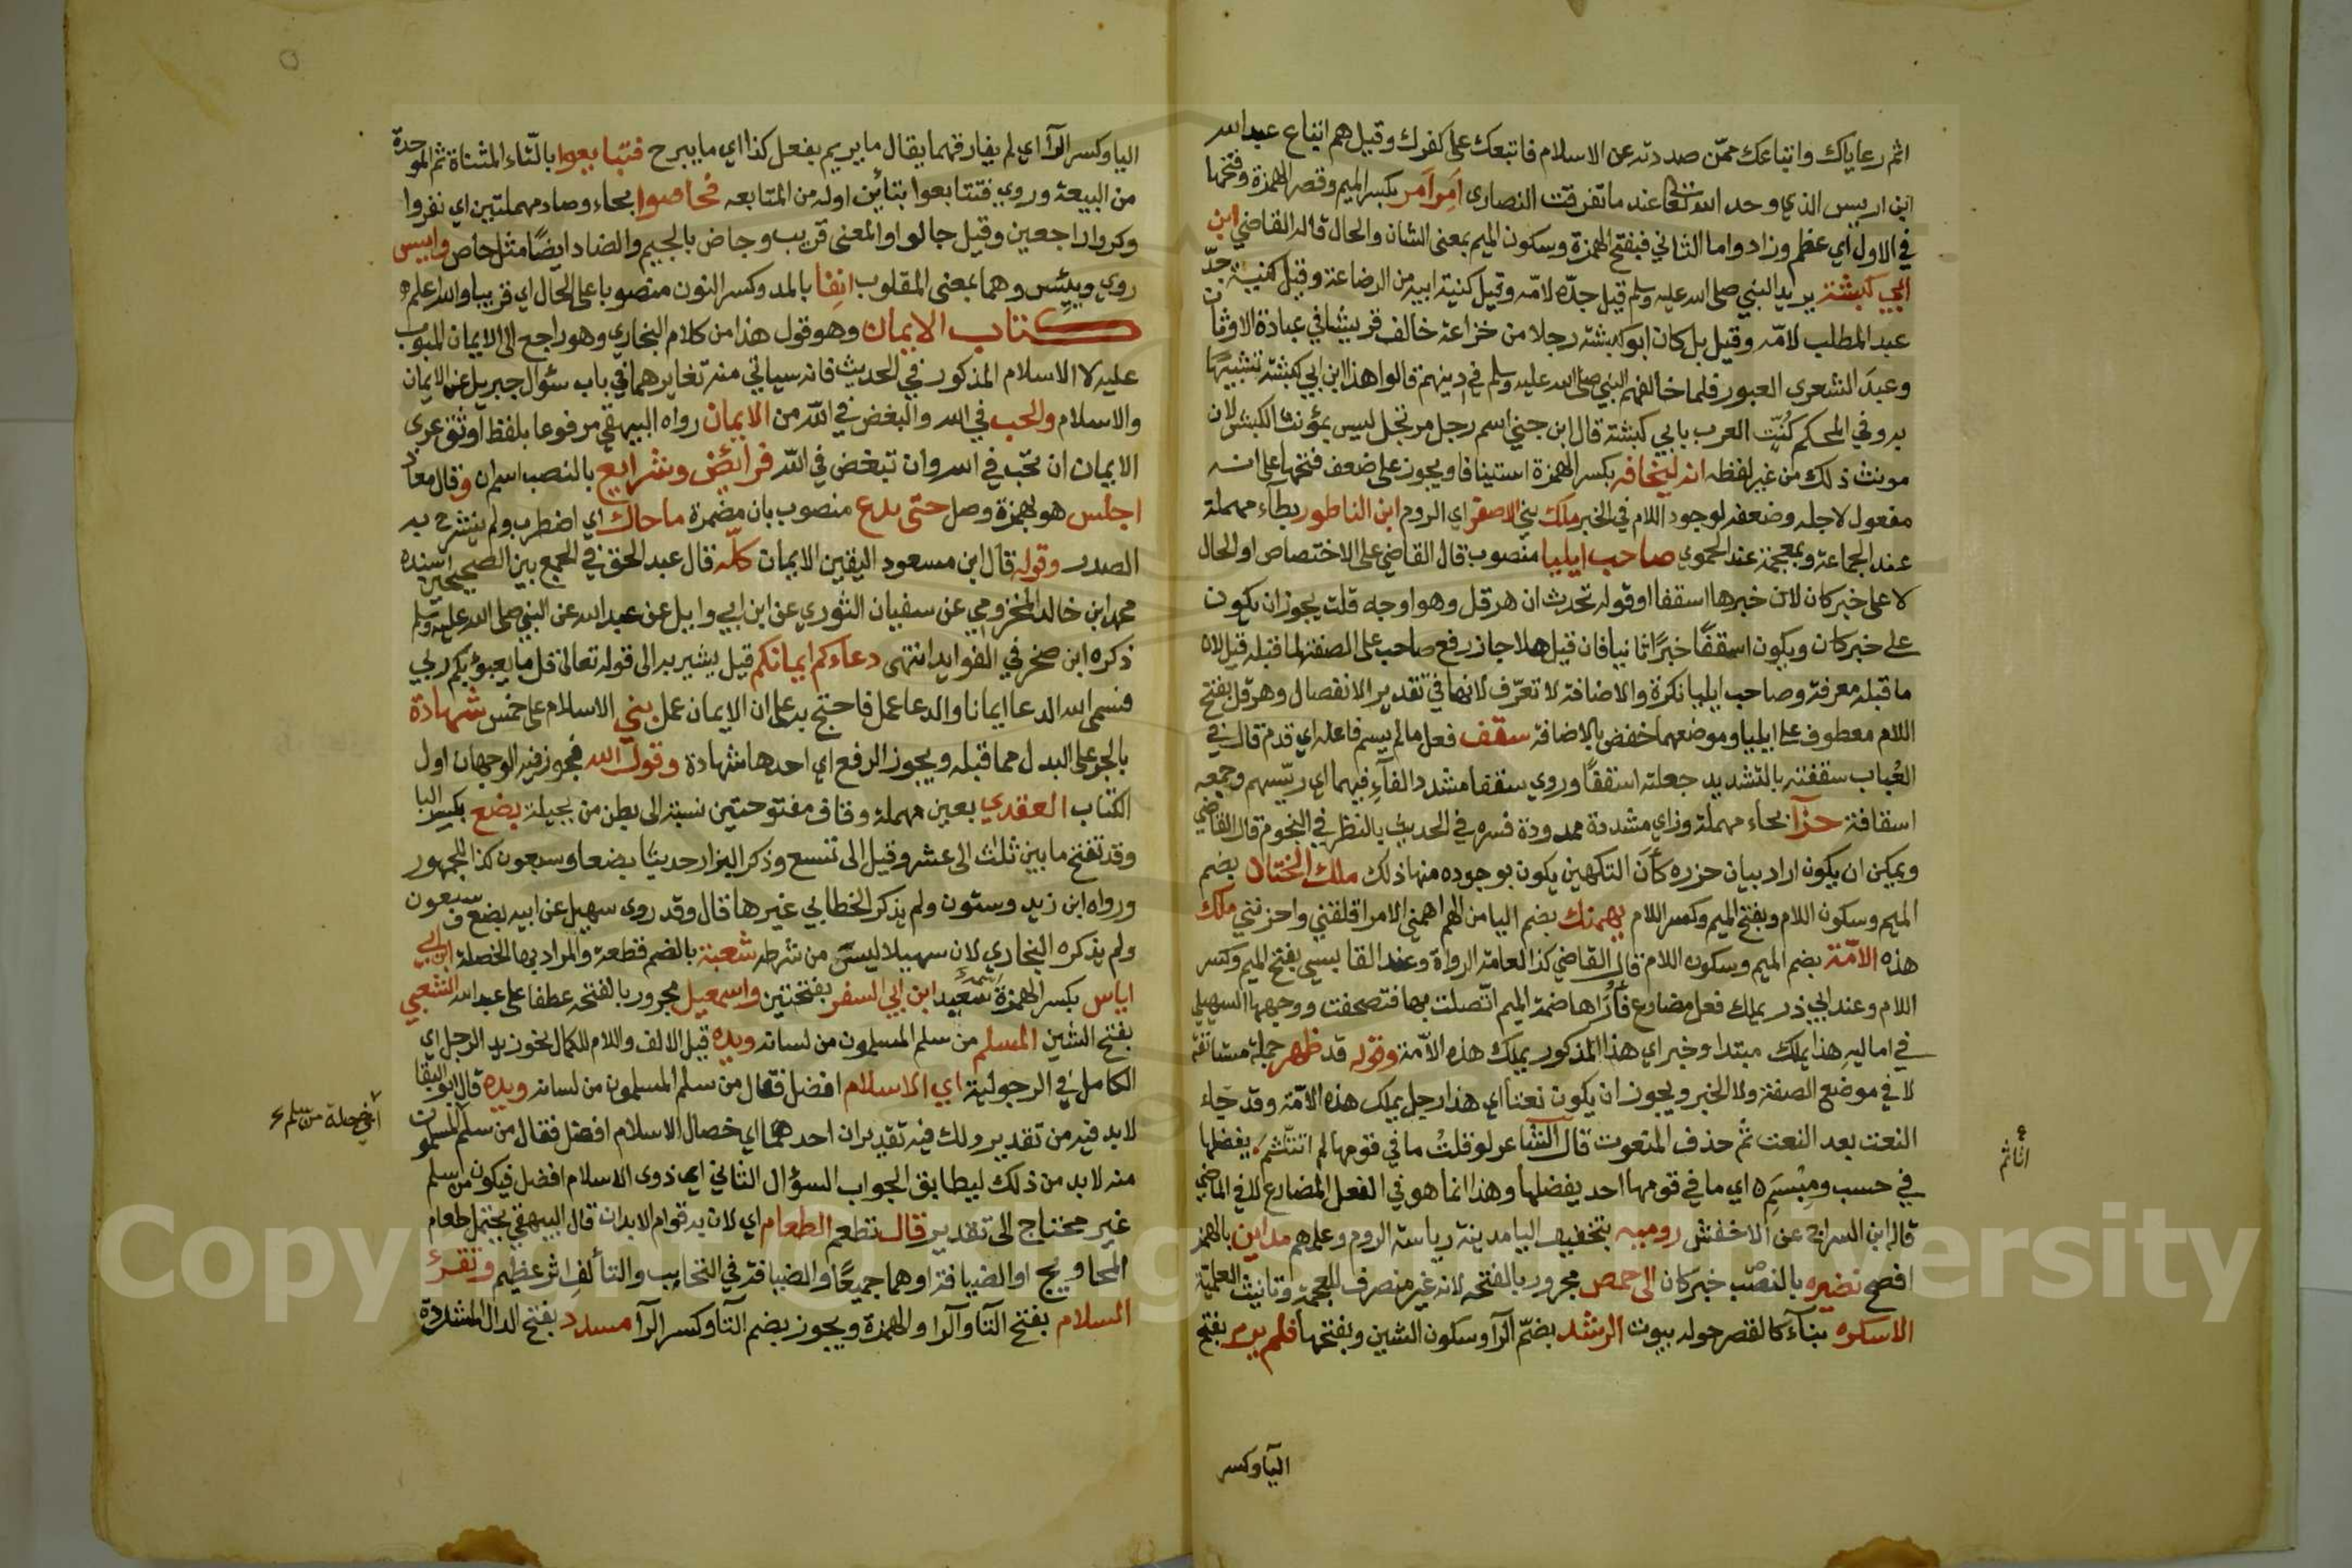 اثم رعاياك واتباعك ممّن صددته عن الاسلام فاتبعك على كفرك وقيل هم اتباع عبد الله
ابن اريس الذي وحد الله تعالى عند ما تفرقت النصارى اَمِرَ اَمر بكسر الميم وقصر الهمزة وفتحها
في الاول اي عظم وزاد واما الثاني فبفتح الهمزة وسكون الميم بمعنى الشان والحال قاله القاضي ابن
ابي كبشة يريد النبي صلى الله عليه وسلم قيل جدّه لامّه وقيل كنية ابيه من الرضاعة وقيل كنية جدّ
عبد المطلب لامّه وقيل بل كان ابو كبشة رجلا من خزاعة خالف قريشا في عبادة الاوثان
وعبدَ الشعرى العبور فلما خالفهم النبي صلى الله عليه وسلم في دينهم قالوا هذا ابن ابي كبشة تشبيهًا
به وفي المحكم كُنيّت العرب بابي كبشة قال ابن جني اسم رجل مرتجل ليس بمؤنث الكبش لان
مونث ذلك من غير لفظه انه ليخافه بكسر الهمزة استينافا ويجوز على ضعف فتحها على انه
مفعول لاجله وضعفه لوجود اللام في الخبر ملك بني الاصفر اي الروم ابن الناطور بطآء مهملة
عند الجماعة وبمعجمة عند الحموي صاحب ايليا منصوب قال القاضي على الاختصاص او الحال
لا على خبر كان لان خبرها اسقفا او قوله تحدث ان هرقل وهو اوجه قلت يجوز ان يكون
على خبر كان ويكون اسقفًّا خبرًا ثانيا فان قيل هلا جاز رفع صاحب على الصفة لما قبله قيل لان
ما قبله معرفة وصاحب ايليا نكرة والاضافة لا تعرّف لانها في تقدير الانفصال وهرقل بفتح
اللام معطوف على ايليا وموضعهما خفض بالاضافة سقف فعل ما لم يسم فاعله اي قدم قال في
العُباب سقفته بالتشديد جعلته اسقفًّا وروي سقفا مشدد الفآءِ فيهما اي ريّسهم وجمعه
اساقفة حزآ بحاء مهملة وزاي مشددة ممدودة فسره في الحديث بالنظر في النجوم قال القاضي
ويمكن ان يكون اراد بيان حزره كأنَّ التكهين يكون بوجوده منها ذلك ملك الختان بضم
الميم وسكون اللام وبفتح الميم وكسر اللام يهمنك بضم اليا من الهم اهمني الامر اقلقني واحزنني ملك
هذه الامّة بضم الميم وسكون اللام قال القاضي كذا لعامة الرواة وعند القابسي بفتح الميم وكسر
اللام وعند ابي ذر يملك فعل مضارع فأُرَاها ضمة الميم اتّصلت بها فتصحفت ووجهها السهيلي
في اماليه هذا يملك مبتدا وخبر اي هذا المذكور يملك هذه الامّة وقوله قد ظهر جملة مستانفة
لا في موضع الصفة ولا الخبر ويجوز ان يكون نعتا اي هذا رجل يملك هذه الامّة وقد جَاء
النعت بعد النعت ثم حذف المنعوت قال الشاعر لو قلتُ ما في قومها لم تيثم يفضلها
في حسب ومِيْسَمِ ه اي ما في قومها احد يفضلها وهذا انما هو في الفعل المضارع لا في الماضي
قاله ابن السراج عن الاخفش روميه بتخفيف اليا مدينة رياسة الروم وعلمهم مداين بالهمز
افصح نضيره بالنصب خبر كان الى حمص مجرور بالفتحه لانه غير منصرف للعجمة وتانيث العلمية
الاسكره بنآء كالقصر حوله بيوت الرشد بضمّ الرآ وسكون الشين وبفتحها فلم يرم بفتح
اليآ وكسر
أنا ثم
اليا وكسر الرآ اي لم يفارقهما يقال ما يريم يفعل كذا اي ما يبرح فتبايعوا بالتّاء المثناة ثم الموحدة
من البيعة وروي فتتابعوا بتائَين اوله من المتابعه فحاصوا بحاء وصاد مهملتين اي نفروا
وكروا راجعين وقيل جالوا والمعنى قريب وجاض بالجيم والضاد ايضًا مثل حاص وايس
روي ويئِس وهما بمعنى المقلوب انِفا بالمد وكسر النون منصوبا على الحال اي قريبا والله اعلم ه
كتاب الايمان وهو قول هذا من كلام البخاري وهو راجع الى الايمان المبوب
عليه لا الاسلام المذكور في الحديث فانه سياتي منه تغايرهما في باب سئوال جبريل عن الايمان
والاسلام والحب في الله والبغض في الله من الايمان رواه البيهقي مرفوعا بلفظ اوثق عرى
الايمان ان تحّب في الله وان تبغض في اللّه فرائض وشرايع بالنصب اسم ان وقال معاذ
اجلس هو بهمزة وصل حتى يدع منصوب بان مضمرة ما حاك اي اضطرب ولم ينشرح به
الصدر وقوله قال ابن مسعود اليقين الايمان كلّه قال عبد الحق في الجمع بين الصحيحين اسنده
محمد ابن خالد المخزومي عن سفيان الثوري عن ابن ابي وايل عن عبد الله عن النبي صلى الله عليه وسلم
ذكره ابن صخر في الفوايد انتهى دعاءكم ايمانكم قيل يشير به الى قوله تعالى قل ما يعبؤ بكم ربي
فسمى الله الدعا ايمانا والدعا عمل فاحتج به على ان الايمان عمل بني الاسلام على خمس شهادة
بالجر على البدل مما قبله ويجوز الرفع اي احدها شهادة وقول الله فيجوز فيه الوجهان اول
الكتاب العقدي بعين مهملة وقاف مفتوحتين نسبة الى بطن من بجيلة بضع بكسر البا
وقد تفتح ما بين ثلاث الى عشر وقيل الى تسع وذكر البزار حديثا بضعا وسبعون كذا للجمهور
ورواه ابن زيد وستون ولم يذكر الخطابي غيرها قال وقد روى سهيل عن ابيه بضع وسبعون
ولم يذكره البخاري لان سهيلا ليس من شرطه شعبة بالضم قطعة والمراد بها الخصلة ابن ابي
اياس بكسر الهمزة سَعيد ابن ابي السفر بفتحتين واسمعيل مجرور بالفتحه عطفا على عبد الله الشعبي
بفتح الشين المسلم من سلم المسلمون من لسانه ويده قيل الالف واللام للكمال نحو زيد الرجل اي
الكامل في الرجولية اي الاسلام افضل فقال من سلم المسلمون من لسانه ويده قال ابو البقا
لا بد فيه من تقدير ولك فيه تقديران احدهما اي خصال الاسلام افضل فقال من سلم المسلمون
منه لا بد من ذلك ليطابق الجواب السؤال الثاني اي ذوى الاسلام افضل فيكون من سلم
غير محتاج الى تقدير قال تطعم الطعام اي لان به قوام الابدان قال البيهقي يحتمل طعام
المحاويج او الضيافة او هما جميعًا والضيافة في التحابب والتألف اثر عظيم وتقرئُ
السلام بفتح التآ والرآ والهمزة ويجوز بضم التآ وكسر الرآ مسدد بفتح الدال المشددة
اي خصلة من سلم
Copyright © King Saud University